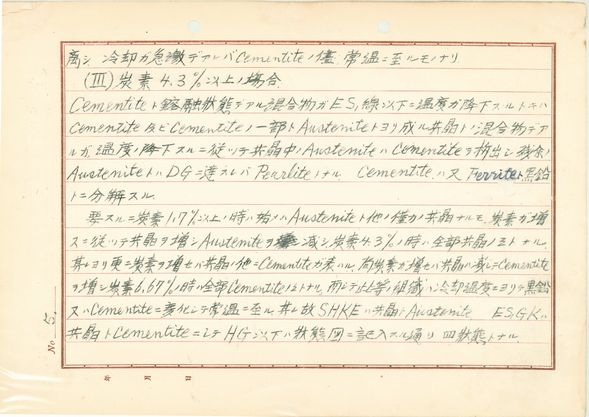 離シ 冷却ガ急激デアレバCementiteノ儘 常温ニ至ルモノナリ
(Ⅲ) 炭素4.3%以上ノ場合
Cementiteト鎔融状態デアル混合物ガES,線以下ニ温度ガ降下スルトキハ
Cementite及ビCementiteノ一部トAusteniteトヨリ成ル共晶トノ混合物デア
ルガ、温度ノ降下スルニ従ッテ共晶中ノAusteniteハCementiteヲ析出シ残余ノ
AusteniteトハDGニ達スレバPearliteトナル. Cementiteハ又Ferriteト黒鉛
トニ分解スル.
要スルニ炭素1.7%以上ノ時ハ始メハAusteniteト他ノ僅カノ共晶ナルモ、炭素ガ増
スニ従ッテ共晶ヲ増シAusteniteヲ減シ炭素4.3%ノ時ハ全部共晶ノミトナル
其レヨリ更ニ炭素ヲ増セバ共晶ノ他ニCementiteガ表ハレ、尚炭素ガ増セバ共晶ハ減シテCementite
ヲ増シ炭素6.67%ノ時ハ全部Cementiteノミトナル、而シテ此等ノ組織ハ冷却温度ニヨリテ黒鉛
又ハCementiteニ変化シテ常温ニ至ル 其レ故SHKEハ共晶トAustenite ESGKハ
共晶トCementiteニシテHG以下ハ状態図ニ記入スル通リ 四状態トナル.
No. 5,
年 月 日